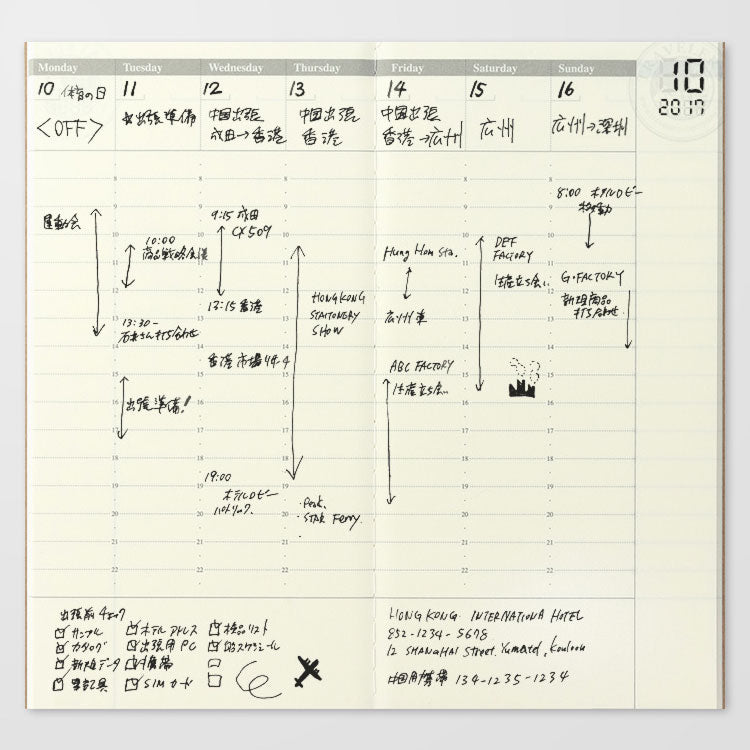 Monday
10 体育の日
<OFF>
運動会
Tuesday
11
出張準備
10:00
商品戦略会議
13:30-
打ち合わせ
出張準備!
Wednesday
12
中国出張
成田→香港
9:15 成田
CX509
13:15 香港
香港市場リサーチ
19:00
ホテルロビー
パトリック
Thursday
13
中国出張
香港
HONGKONG
STATIONERY
SHOW
・Peak.
・STAR Ferry.
・
Friday
14
中国出張
香港→広州
Hung Hom Sta.
広州東
ABC FACTORY
生産立ち会い
Saturday
15
広州
DEF
FACTORY
生産立ち会い
Sunday
16
広州→深圳
8:00 ホテルロビー
移動
G・FACTORY
新規商品
打ち合わせ
10
2017
8
9
10
11
12
13
14
15
16
17
18
19
20
21
22
出張前チェック
サンプル
カタログ
新規データ
筆記具
ホテルアドレス
出張用PC
携帯
SIMカード
検品リスト
スケジュール
HONG KONG INTERNATIONA HOTEL
852-1234-5678
12 SHANGHAI Street. Yumatei, Kouloon
中国用携帯 134-1235-1234